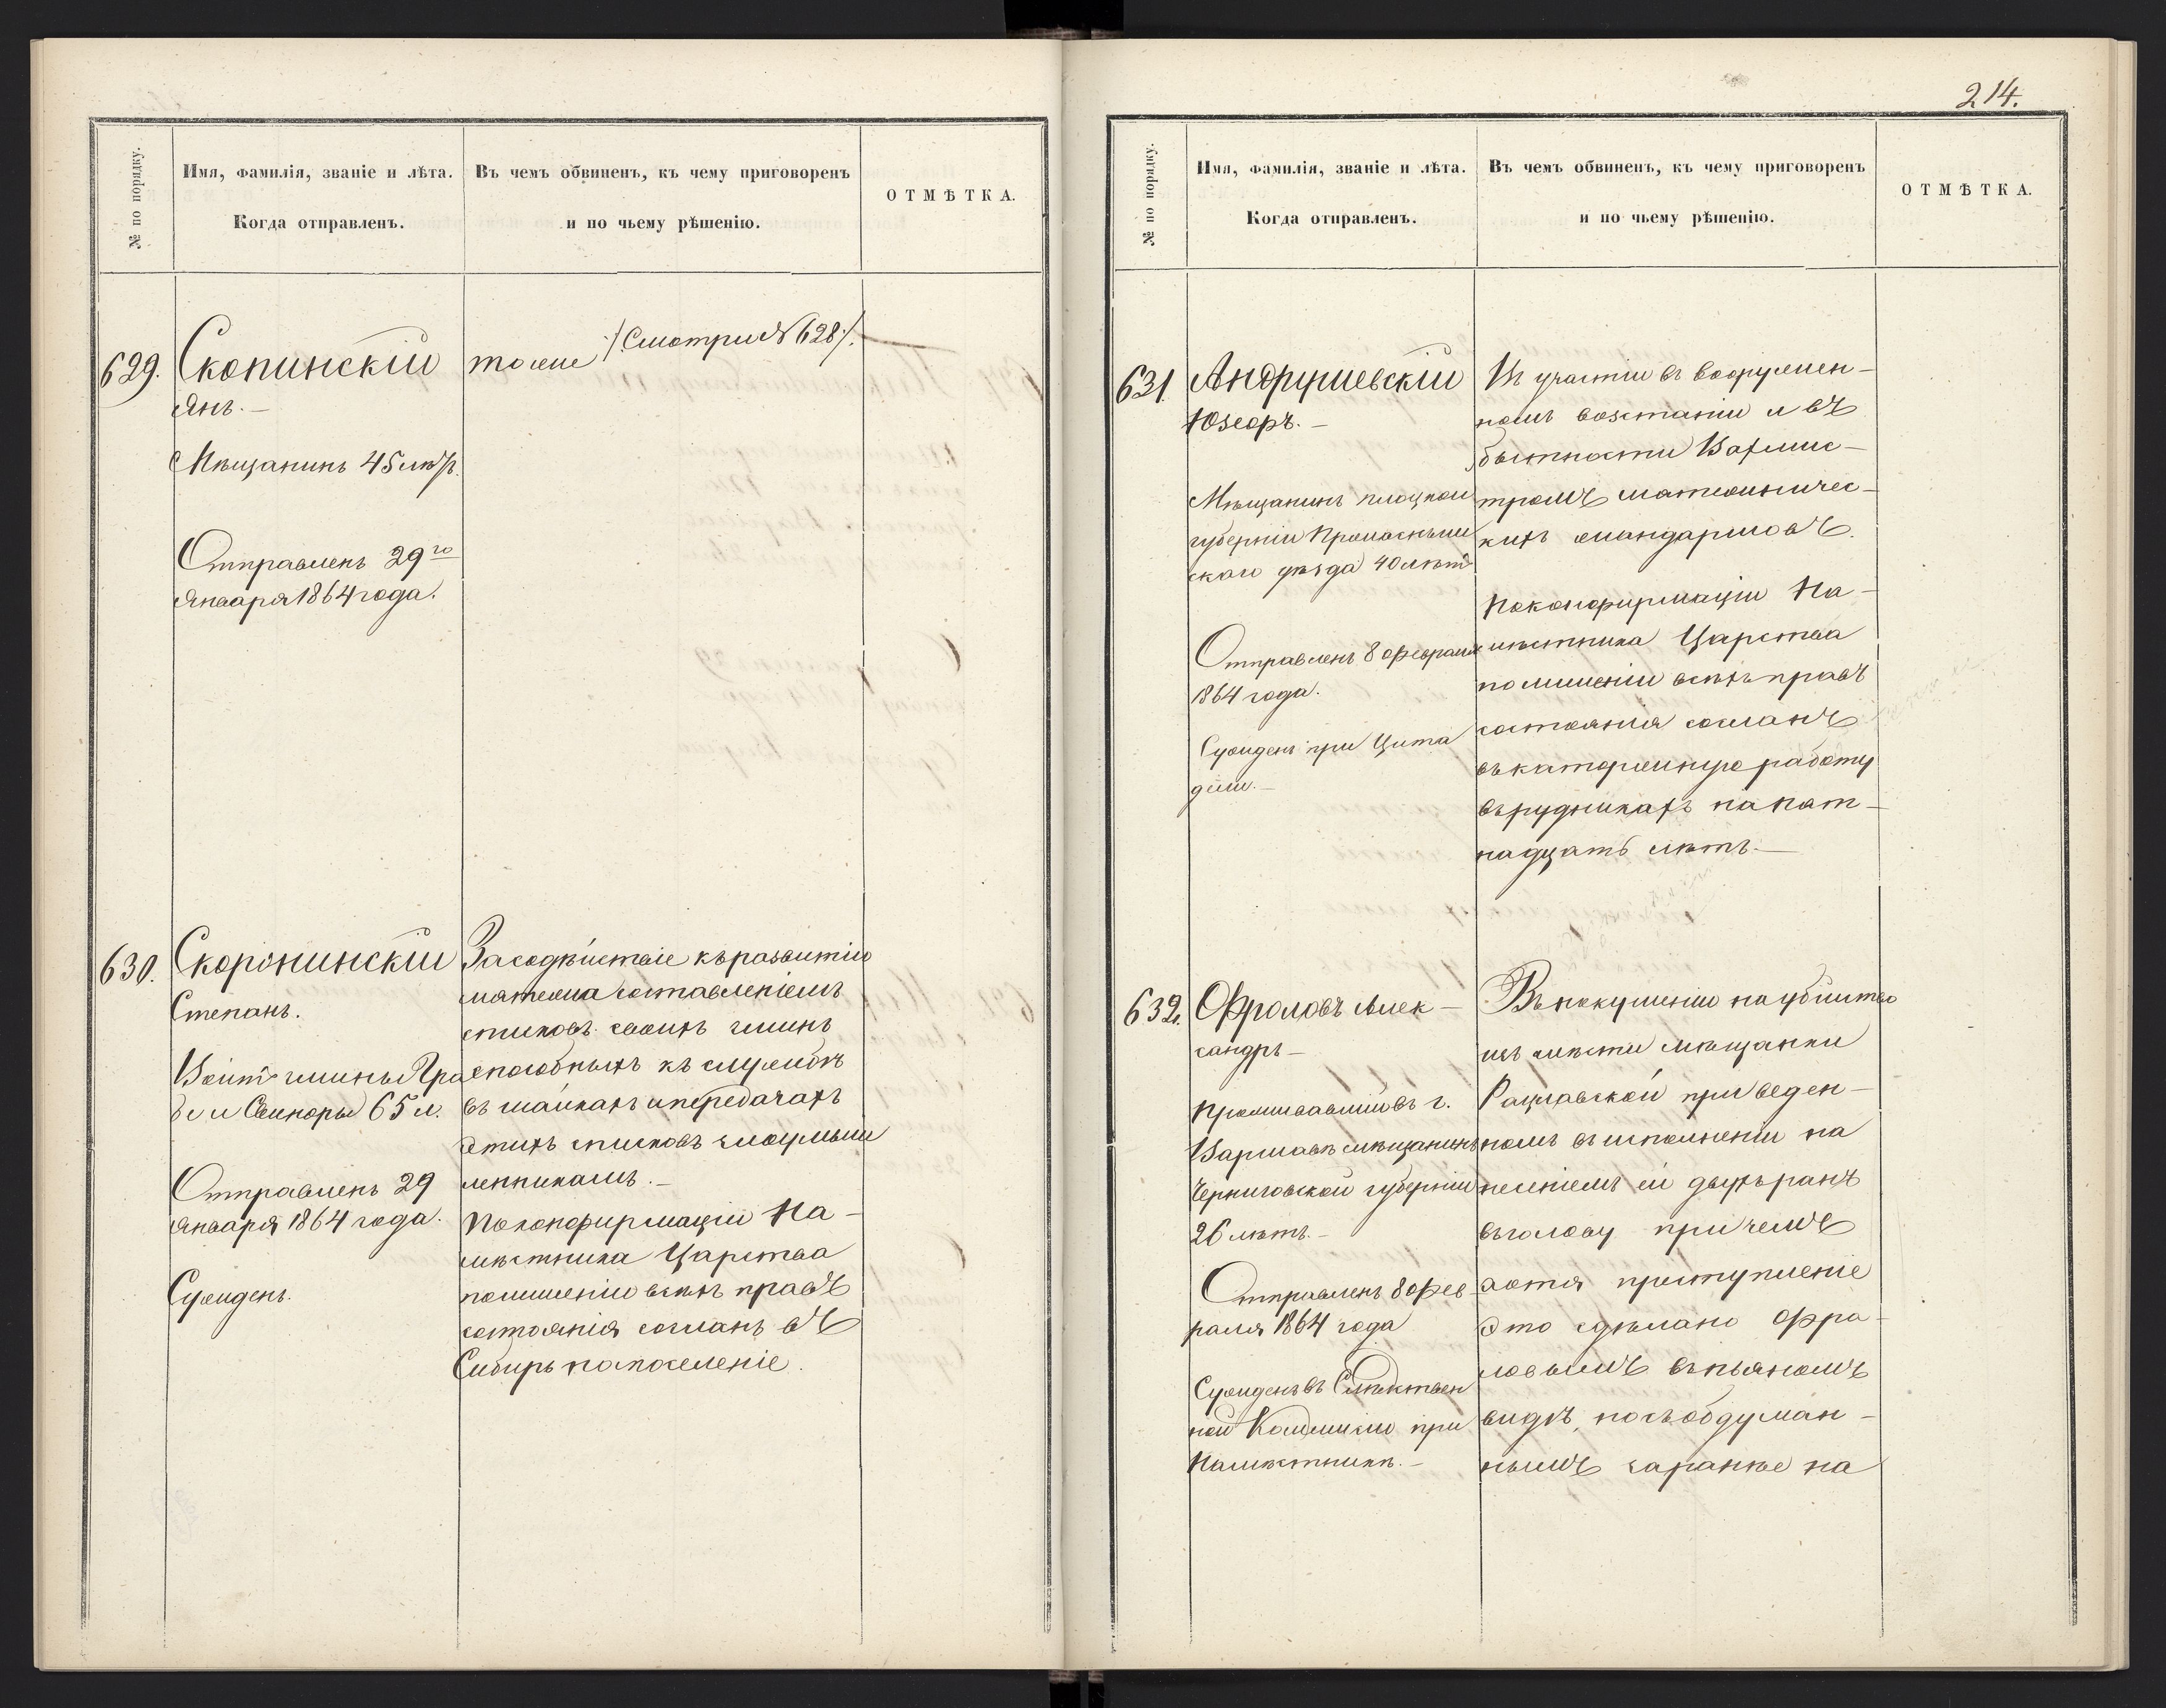 № по порядку.
Имя, фамилія, званіе и лѣта.
Когда отправленъ.
Въ чемъ обвиненъ, къ чему приговоренъ
и по чьему рѣшенію.
ОТМѢТКА.
629.
Скопинскій
Янъ.—
Мѣщанинъ 45 лѣтъ.
Отправленъ 29го
Января 1864 года.
тоже /:Смотри № 628:/.
630.
Скоронинскій
Степанъ.
Войтъ гмины Гра
бе и Свиноры 65 л.
Отправленъ 29
Января 1864 года.
Сужденъ.
За содѣйствіе къ развитію
мятежа составленіемъ
списковъ своихъ гминъ
способныхъ къ службѣ
въ шайкахъ и передачахъ
этихъ списковъ злоумыш
ленникамъ.—
По конфирмаціи На-
мѣстника Царства
по лишеніи всѣхъ правъ
состоянія сосланъ въ
Сибирь на поселеніе.
214.
№ по порядку.
Имя, фамилія, званіе и лѣта.
Когда отправленъ.
Въ чемъ обвиненъ, къ чему приговоренъ
и по чьему рѣшенію.
ОТМѢТКА.
631.
Андрушевскій
Юзефъ.—
Мѣщанинъ плоцкой
губерніи
скаго уѣзда 40 лѣтъ
Отправленъ 8 февраля
1864 года.
Сужденъ при Цита
дели.—
Въ участіи въ вооружен-
номъ возстаніи и въ
бытности Вахмис-
тромъ мятежничес-
кихъ жандармовъ.
По конфирмаціи На-
мѣстника Царства
по лишеніи всѣхъ правъ
состоянія сосланъ
въ каторжную работу
въ рудникахъ на пят-
надцать лѣтъ.—
632.
Фроловъ Алек-
сандръ—
Проживавшій въ г.
Варшавѣ мѣщанинъ
Черниговской губерніи
26 лѣтъ.—
Отправленъ 8 Фев
раля 1864 года
Сужденъ въ Слѣдствен
ной Коммисіи при
Намѣстникѣ.—
Въ покушеніи на убійство
изъ мѣсти мѣщанки
Рацлавской приведен-
номъ въ исполненіи на
несеніемъ ей двухъ ранъ
въ голову при чемъ
хотя преступленіе
это сдѣлано Фро-
ловымъ въ пьяномъ
видѣ, но съ обдуман-
нымъ заранѣе на